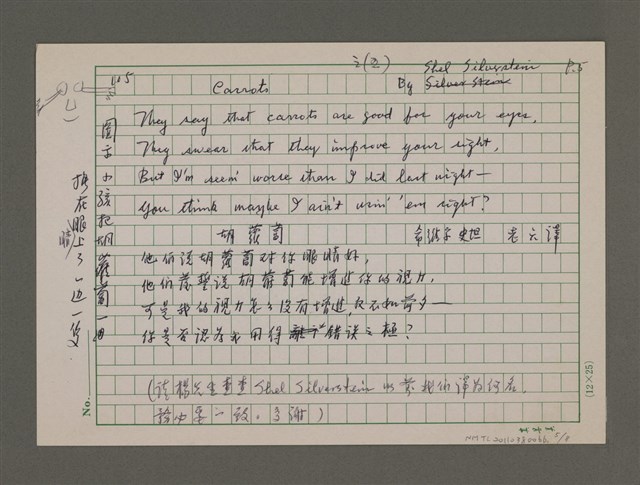 三(2)
Shel Silverstein
P.5
Carrots
By Silver Stein
They say that carrots are good for your eyes,
They swear that they improve your sight,
But I'm seein' worse than I did last night—
You think maybe I ain't usin' 'em right?
胡蘿蔔
希維爾史坦
譯
他們說胡蘿蔔對你眼睛好,
他們發誓說胡蘿蔔能增進你的視力,
可是我的視力怎么沒有增進,反不如昨夕—
你是否認為我用得錯誤之極?
(請楊先生查查 Shel Silverstein 以前我們譯為何名,
前後要一致。多謝)
圖示小孩把胡蘿蔔一
插在眼睛上了一邊一隻
No.
(12×25)
5/8